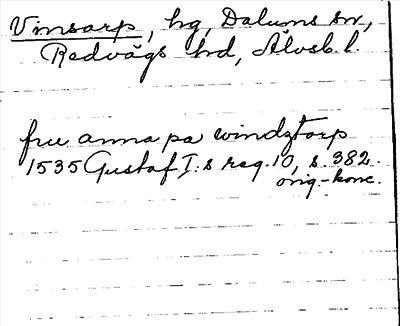 Vinsarp, hg, Dalums sn,
Redvägs hd, Älvsb. l.
fru anna pa windztorp
1535 Gustaf I:s reg. 10, s. 382.
orig.-konc.